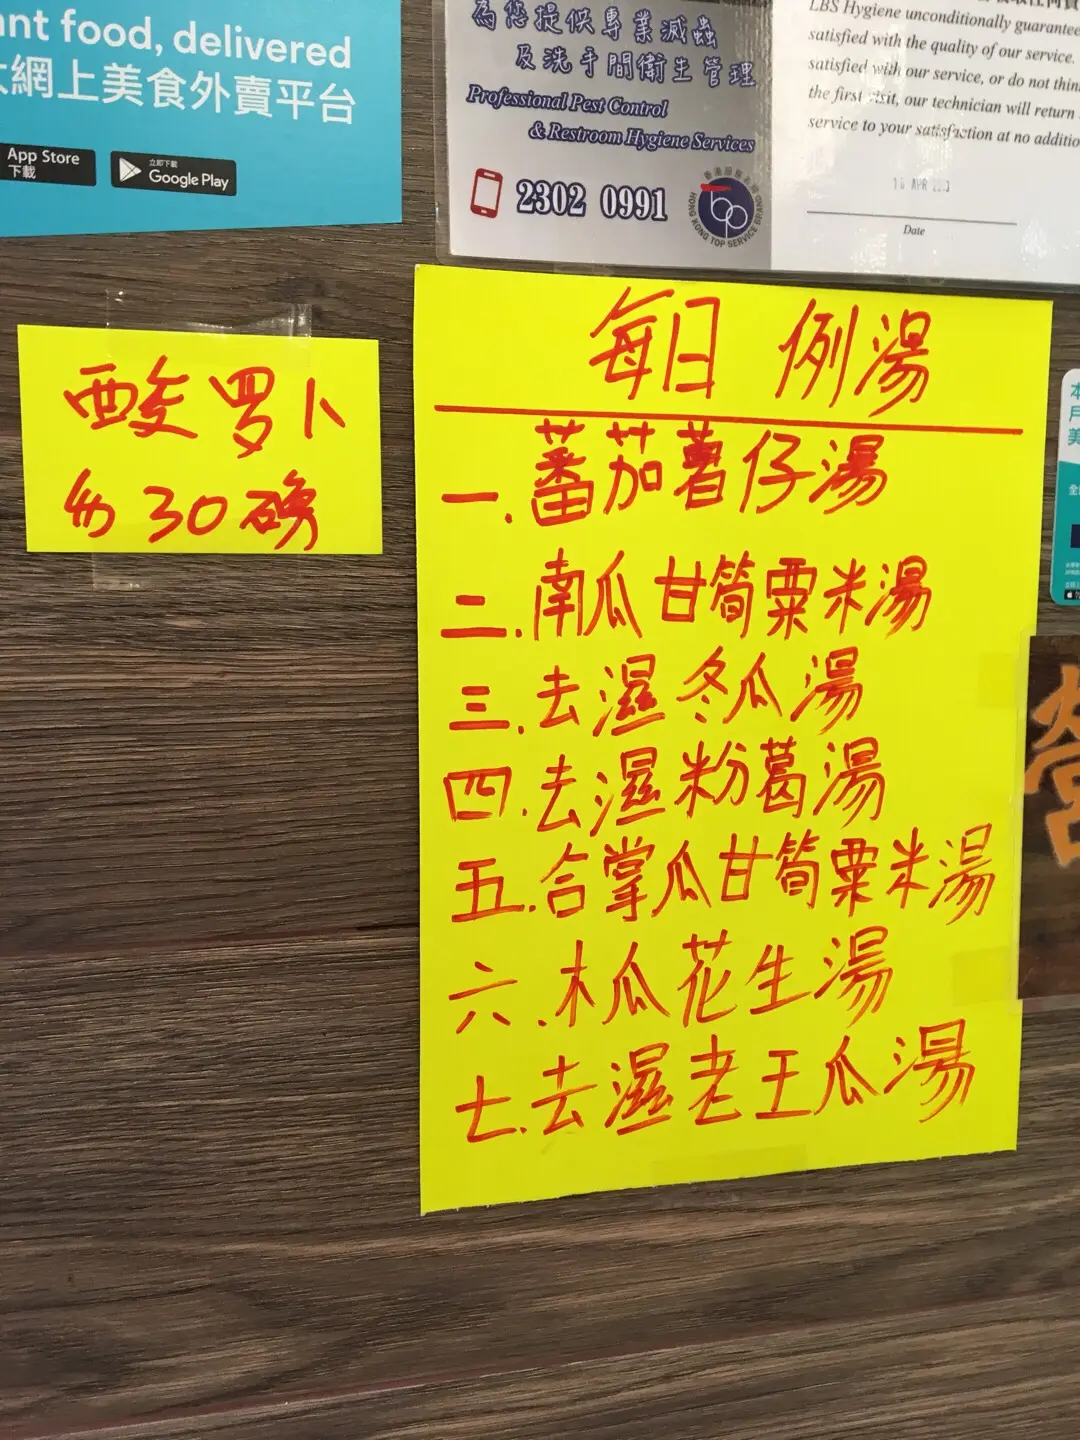 nt food, delivered
網上美食外賣平台
App Store
下載
立即下載
Google Play
為您提供專業滅蟲
及洗手間衛生管理
Professional Pest Control
& Restroom Hygiene Services
2302 0991
HONG KONG TOP SERVICE BRAND
LBS Hygiene unconditionally guarantee
satisfied with the quality of our service.
satisfied with our service, or do not thin
the first visit, our technician will return
service to your satisfaction at no additio
Date
酸罗卜
30磅
每日 例湯
一.蕃茄薯仔湯
二.南瓜甘筍粟米湯
三.去濕冬瓜湯
四.去濕粉葛湯
五.合掌瓜甘筍粟米湯
六.木瓜花生湯
七.去濕老王瓜湯
本
戶
美
營